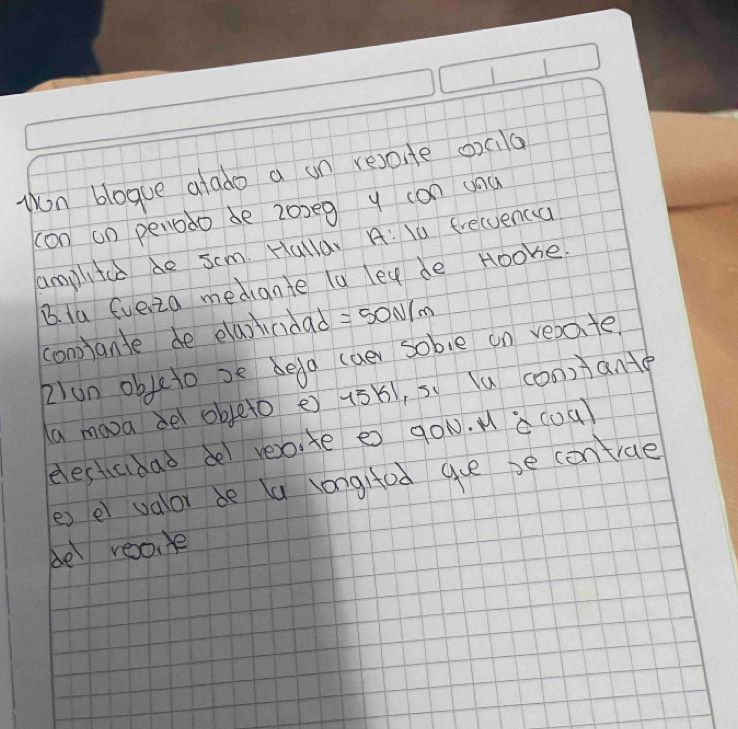 1) Un bloque atado a un resorte oscila
con un periodo de 20seg y con una
amplitud de 5cm. Hallar A: la frecuencia
B. la fuerza mediante la ley de Hooke.
constante de elasticidad = 50N/m
2) un objeto se deja caer sobre un resorte,
la masa del objeto es 45Kl, si la constante
elesticidad del resorte es 90N.M ¿cual
es el valor de la longitud que se contrae
del resorte